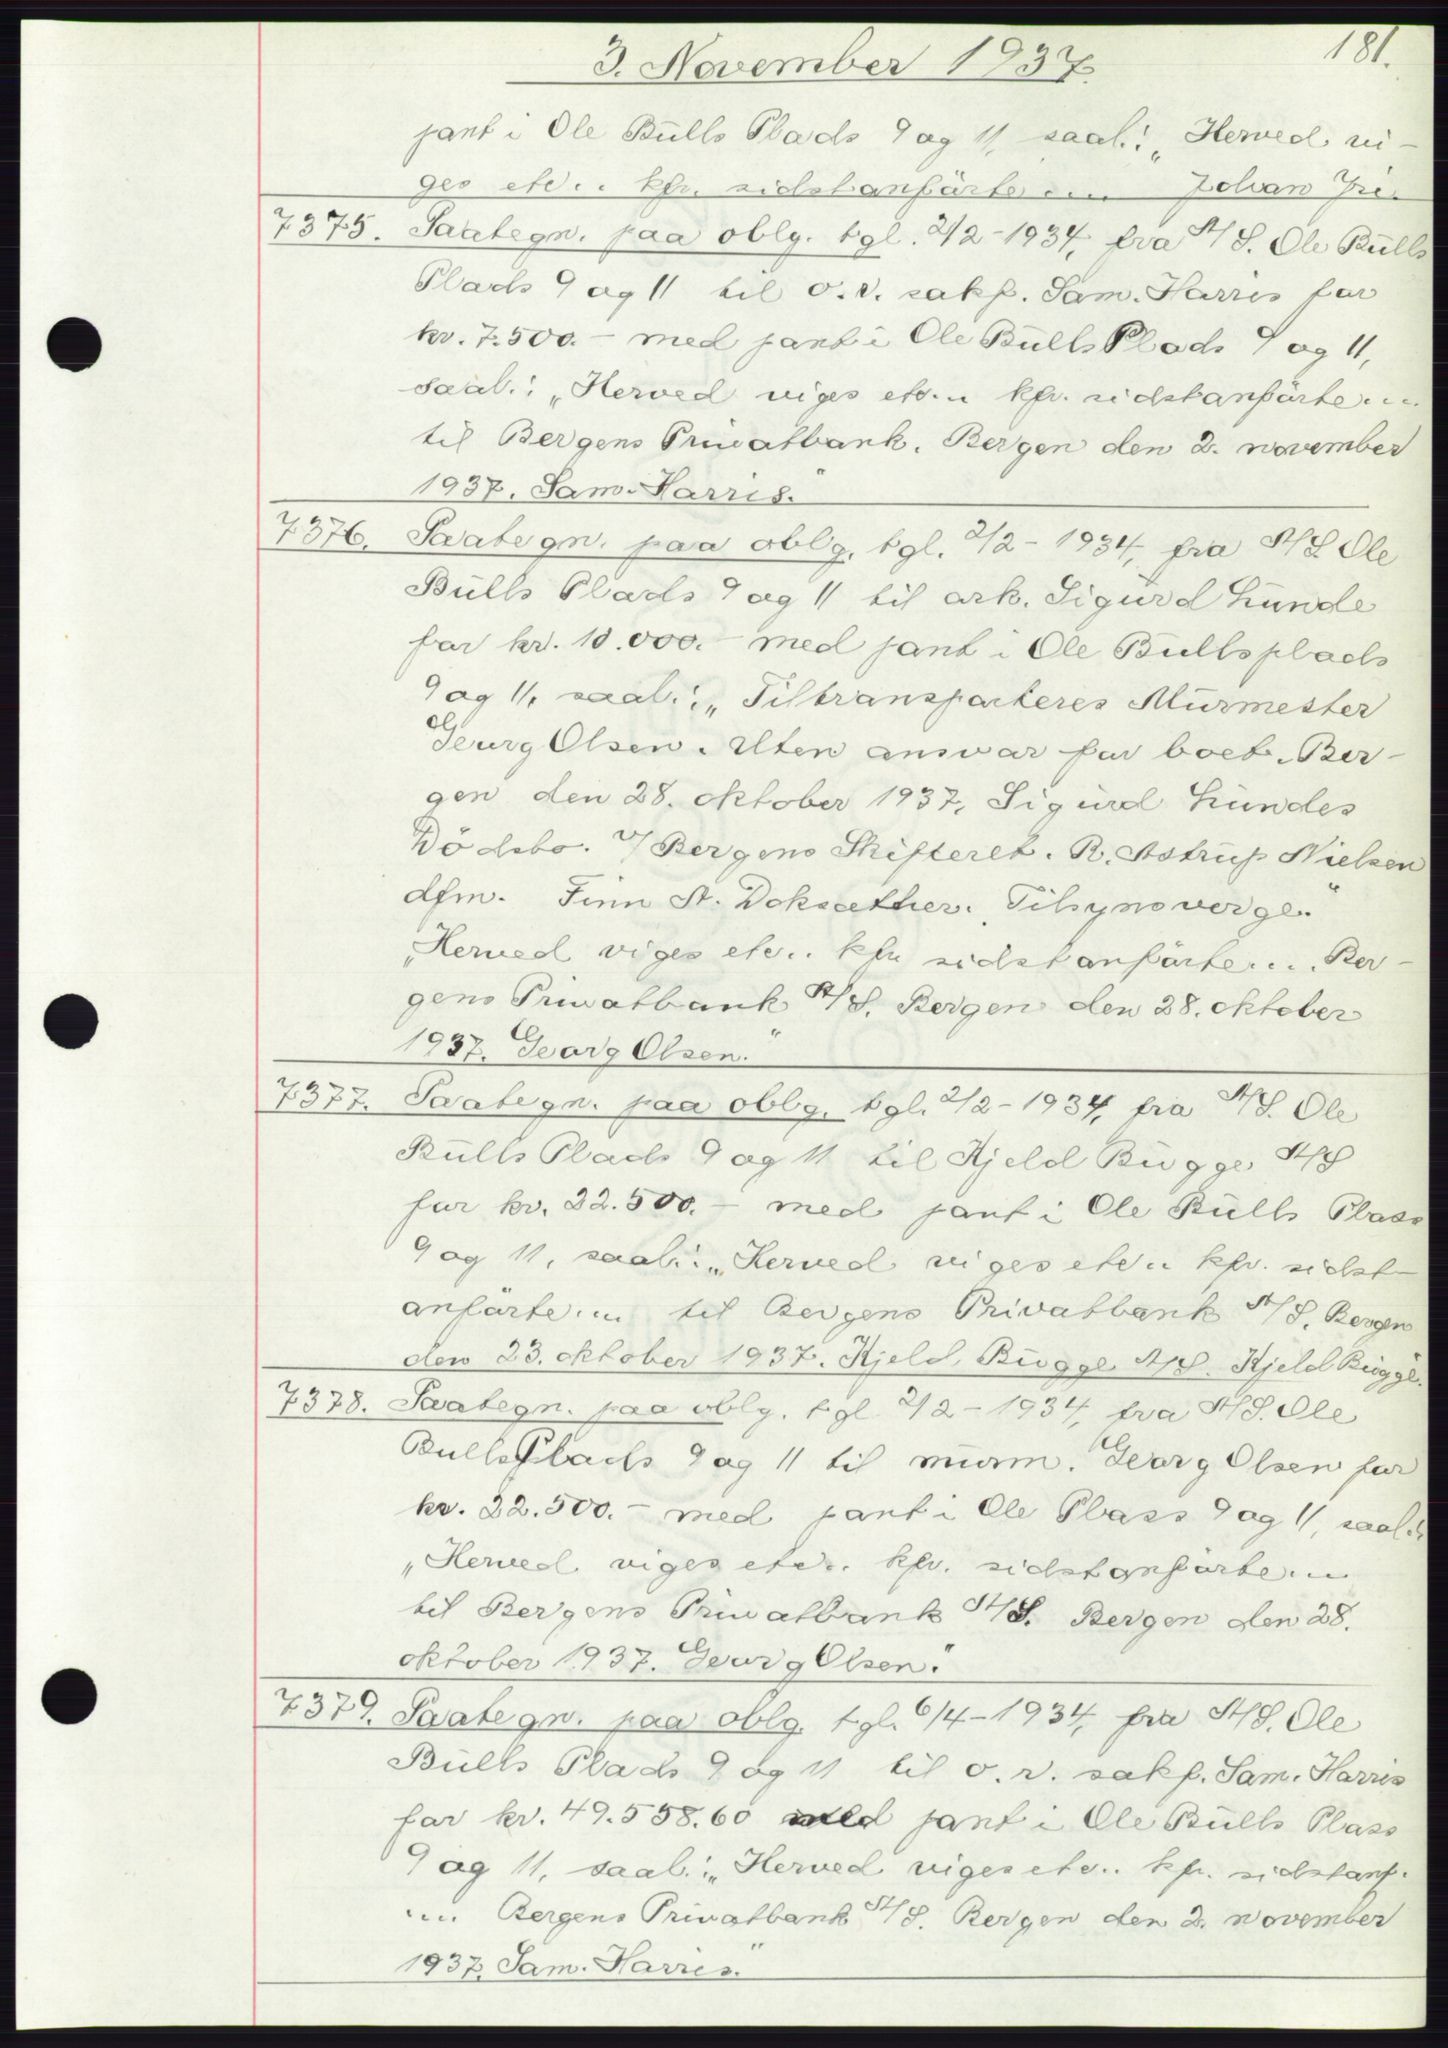 181.
3. November 1937.
pant i Ole Bülls Plads 9 og 11, saal.: „Herved vi-
ges etc.. kfr. sidstanförte... Johan Irè.
7375. Paategn. paa oblg. tgl. 2/2-1934, fra A/S. Ole Bülls
Plads 9 og 11 til o.r. sakf. Sam. Harris for
kr. 7.500.- med pant i Ole Bülls Plads 9 og 11,
saal.: „Herved viges etc.. kfr. sidstanförte...
til Bergens Privatbank. Bergen den 2. november
1937. Sam. Harris."
7376. Paategn. paa oblg. tgl. 2/2-1934, fra A/S Ole
Bülls Plads 9 og 11 til ark. Sigürd Lünde
for kr. 10.000.- med pant i Ole Büllsplads
9 og 11, saal.: „Tiltransporteres Mürmester
Georg Olsen. Uten ansvar for boet. Ber-
gen den 28. oktober 1937, Sigürd Lündes
Dödsbo. v/ Bergens Skifteret. R. Astrüp Nielsen
dfm. Finn A. Doksæther. Tilsynsverge."
„Herved viges etc.. kfr sidstanförte.... Ber-
gens Privatbank A/S. Bergen den 28. oktober
1937. Georg Olsen."
7377. Paategn. paa oblg. tgl. 2/2-1934, fra A/S. Ole
Bülls Plads 9 og 11 til Kjeld Bügge A/S
for kr. 22.500.- med pant i Ole Bülls Plass
9 og 11, saal.: „Herved viges etc.. kfr. sidst-
anförte... til Bergens Privatbank A/S. Bergen
den 23. oktober 1937. Kjeld Bügge A/S. Kjeld Bügge."
7378. Paategn. paa oblg. tgl 2/2-1934, fra A/S. Ole
Bulls Plads 9 og 11 til mürm. Georg Olsen for
kr. 22.500.- med pant i Ole Plass 9 og 11, saal.:
„Herved viges etc.. kfr. sidstanförte...
til Bergens Privatbank A/S. Bergen den 28.
oktober 1937. Georg Olsen."
7379. Paategn. paa oblg. tgl. 6/4-1934, fra A/S. Ole
Bülls Plads 9 og 11 til o.r. sakf. Sam. Harris
for kr. 49.558.60 med pant i Ole Bülls Plass
9 og 11, saal.: „Herved viges etc.. kfr. sidstanf.
.... Bergens Privatbank A/S. Bergen den 2. november
1937. Sam. Harris."